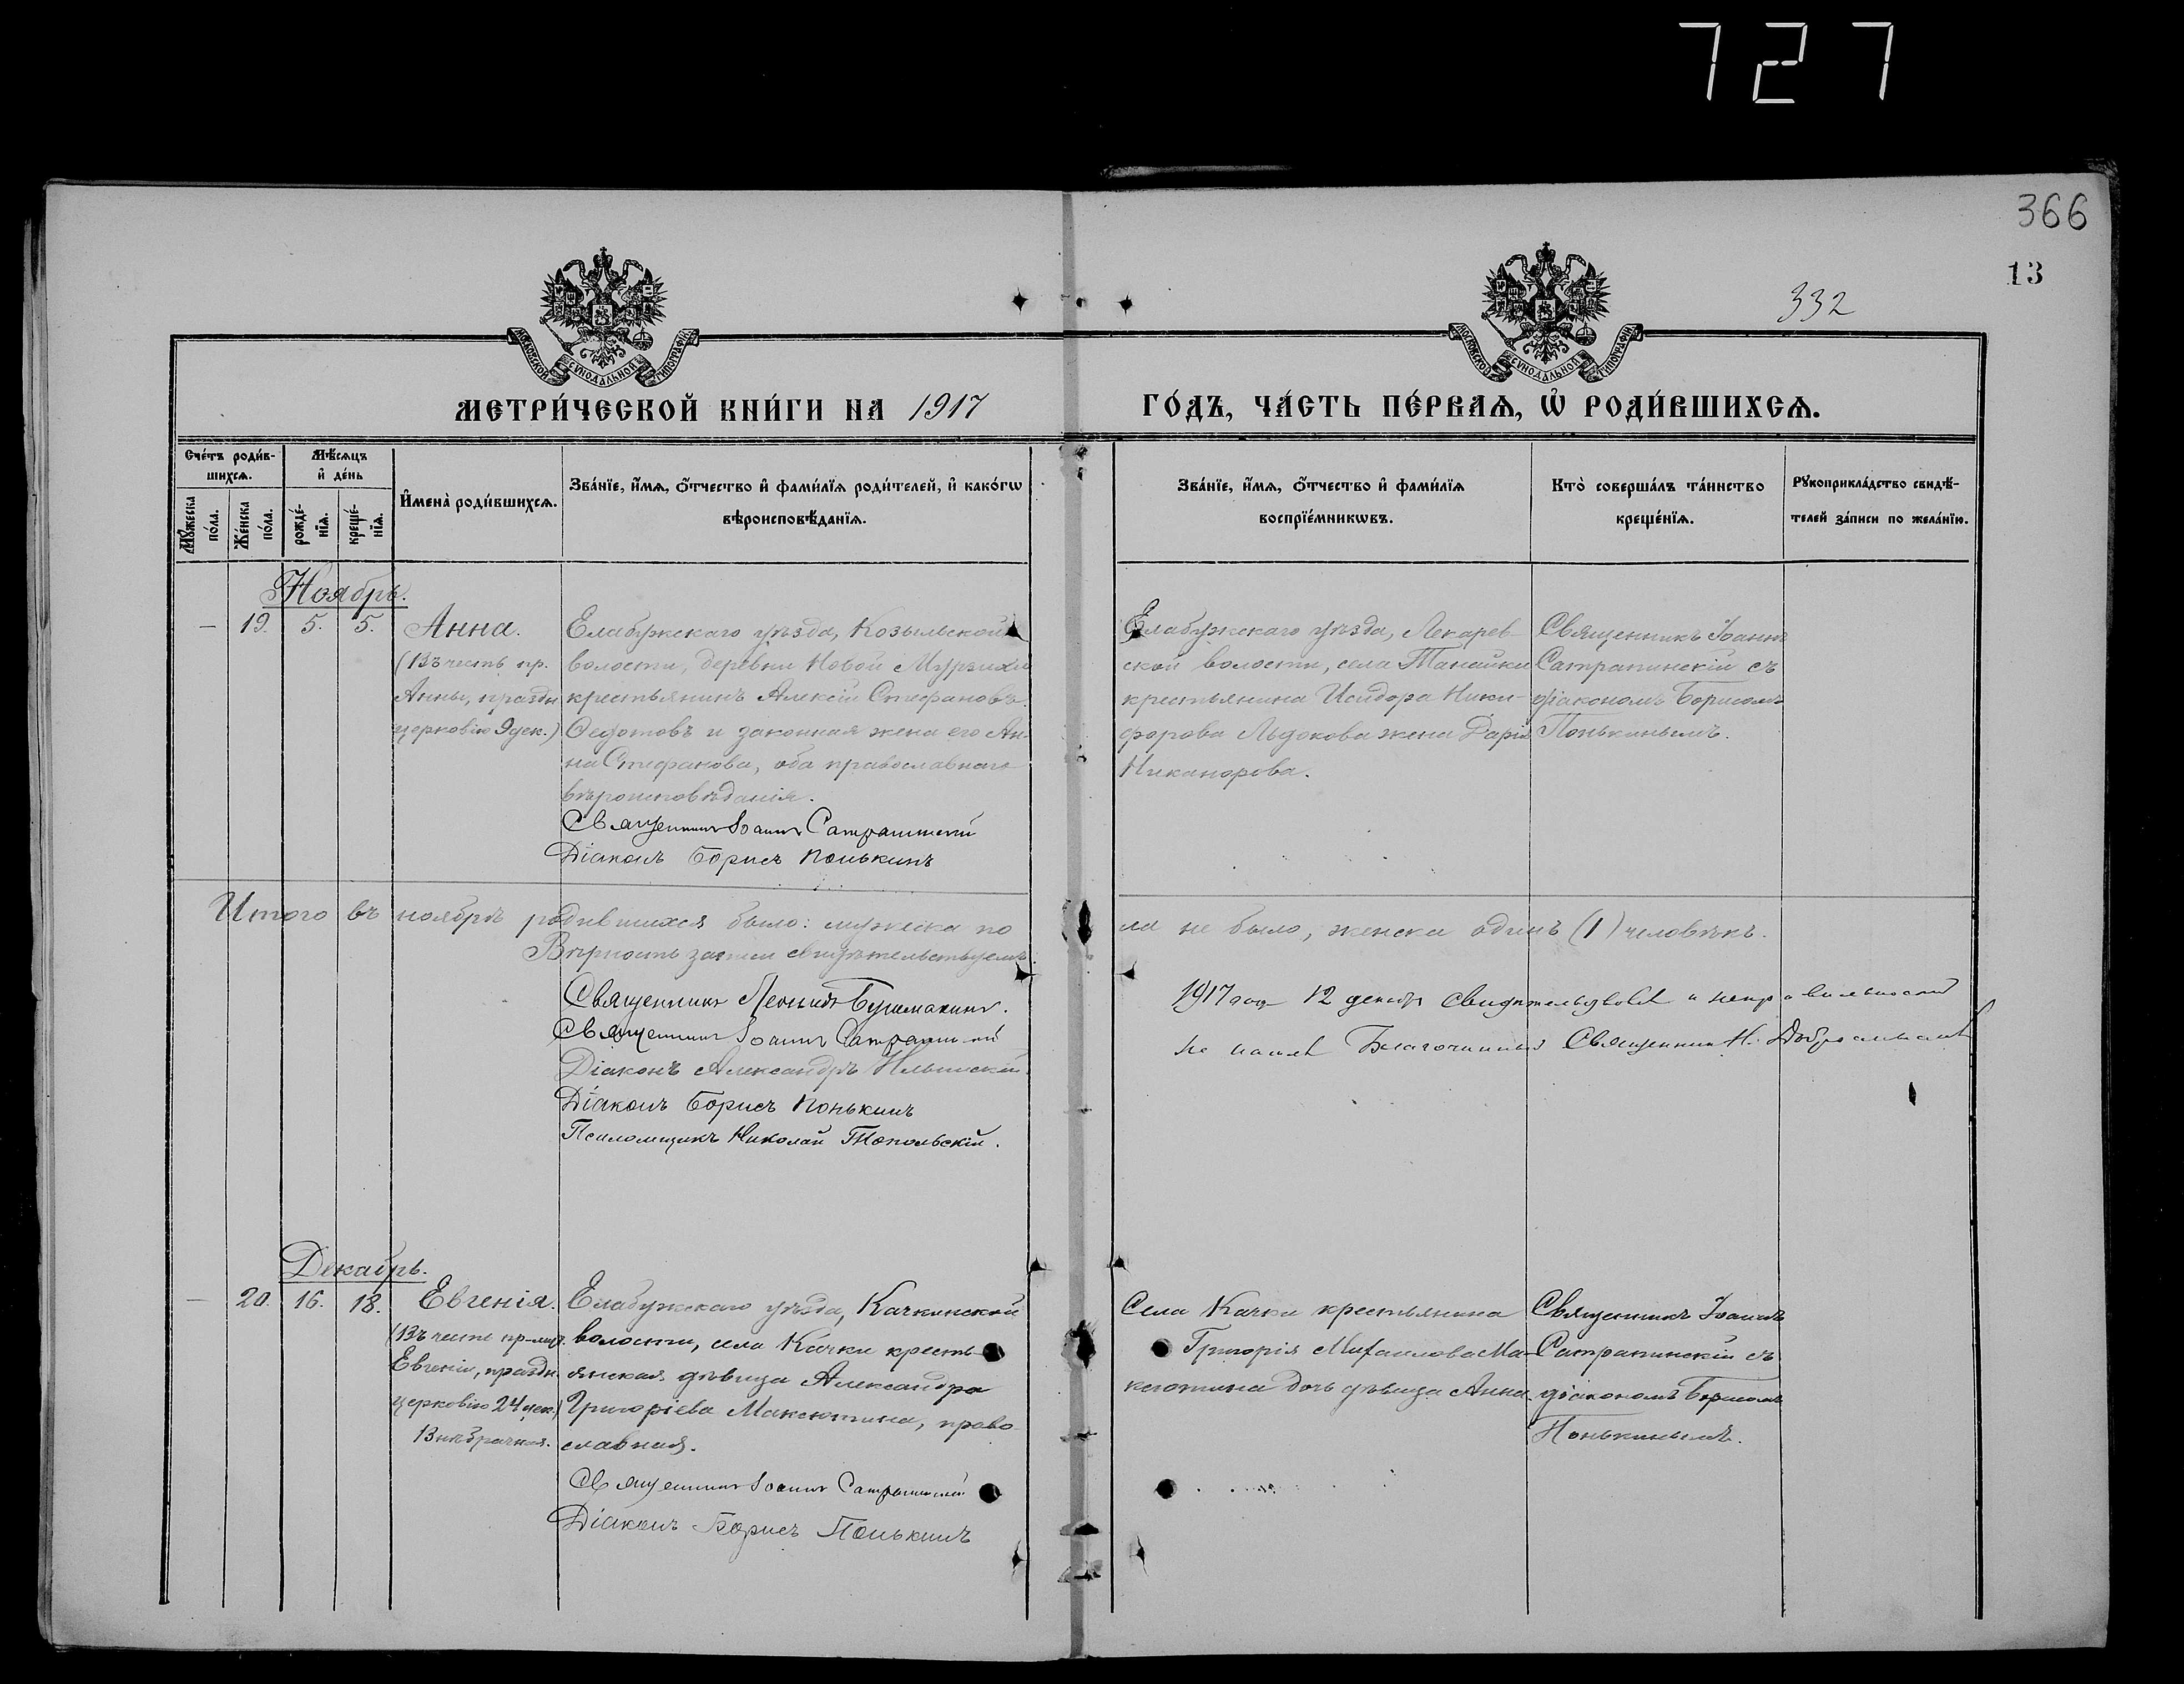 727
366
13
332
МОСКОВСКОЙ СѴНОДАЛЬНОЙ ТИПОГРАФІИ
МОСКОВСКОЙ СѴНОДАЛЬНОЙ ТИПОГРАФІИ
МЕТРИ́ЧЕСКОЙ КНИ́ГИ НА 1917
ГО́ДЪ, ЧА́СТЬ ПЕ́РВАѦ, Ѡ҆ РОДИ́ВШИХСѦ.
Сче́тъ роди́в-
шихсѧ.
Мѣ́сѧцъ
и҆ де́нь
Мꙋ́жеска
по́ла.
Же́нска
по́ла.
рожде́-
нїѧ.
креще́-
нїѧ.
И҆мена̀ роди́вшихсѧ.
Зва́нїе, и҆́мѧ, ѻ҆́тчество и҆ фами́лїѧ роди́телей, и҆ како́гѡ
вѣроисповѣ́данїѧ.
Зва́нїе, и҆́мѧ, ѻ҆́тчество и҆ фами́лїѧ
воспрїе́мникѡвъ.
Кто̀ соверша́лъ та́инство
креще́нїѧ.
Рꙋкоприкла́дство свидѣ́-
телей за́писи по жела́нїю.
Ноябрь.
— 19. 5. 5. Анна.
(Въ честь пр.
Анны, праздн.
церковію 9 дек.)
Елабужскаго уѣзда, Козыльской
волости, деревни Новой Мурзихи
крестьянинъ Алексій Стефановъ
Ѳедотовъ и законная жена его Ан-
на Стефанова, оба православнаго
вѣроисповѣданія.
Священникъ Іоаннъ Сатрапинскій
Діаконъ Борисъ Понькинъ
Елабужскаго уѣзда, Лекарев-
ской волости, села Танайки
крестьянина Исидора Ники-
форова жена Дарія
Никанорова.
Священникъ Іоаннъ
Сатрапинскій съ
діакономъ Борисомъ
Понькинымъ.
Итого въ ноябрѣ родившихся было: мужеска по
ла не было, женска одинъ (1) человѣкъ.
Вѣрность записи свидѣтельствуемъ:
Священникъ Леонидъ
Священникъ Іоаннъ Сатрапинскій
Діаконъ Александръ Ильинскій.
Діаконъ Борисъ Понькинъ
Псаломщикъ Николай Топольскій.
1917 года 12 декабр свидѣтельствовалъ и неправильностей
не нашелъ Благочинный Священникъ Н.
Декабрь.
— 20. 16. 18. Евгенія.
(Въ честь пр-муч.
Евгеніи, праздн.
церковію 24 дек.)
Внѣбрачная.
Елабужскаго уѣзда, Качкинской
волости, села Качки кресть-
янская дѣвица Александра
Григоріева Максютина, право-
славная.
Священникъ Іоаннъ Сатрапинскій
Діаконъ Борисъ Понькинъ
Села Качки крестьянина
Григорія Михаилова Ма-
ксютина дочь дѣвица Анна.
Священникъ Іоаннъ
Сатрапинскій съ
діакономъ Борисомъ
Понькинымъ.